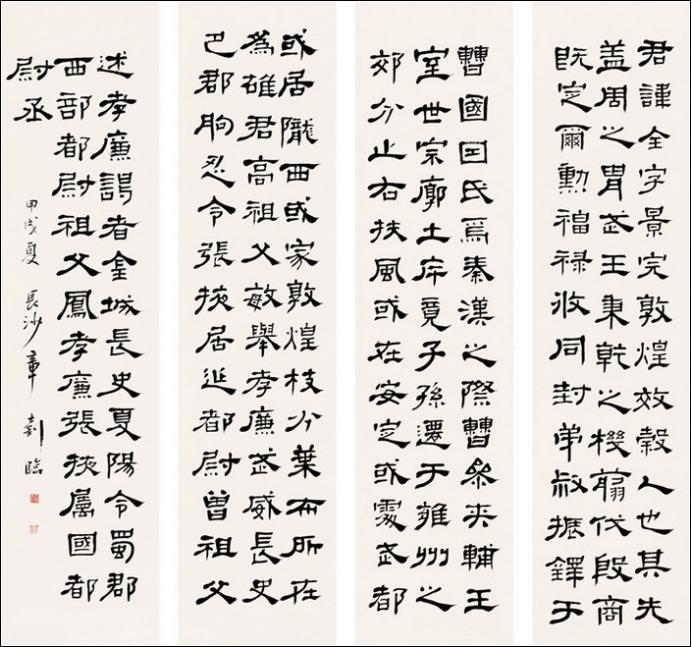 君諱全字景完敦煌效穀人也其先
盖周之胄武王秉乾之機翦伐殷商
既定爾勳福禄攸同封弟叔振鐸于
曹國因氏焉秦漢之際曹參夾輔王
室世宗廓土斥竟子孫遷于雍州之
郊分止右扶風或在安定或處武都
或居隴西或家敦煌枝分葉布所在
為雄君高祖父敏舉孝廉武威長史
巴郡朐忍令張掖居延都尉曾祖父
述孝廉謁者金城長史夏陽令蜀郡
西部都尉祖父鳳孝廉張掖屬國都
尉丞
甲戌夏 長沙章 臨